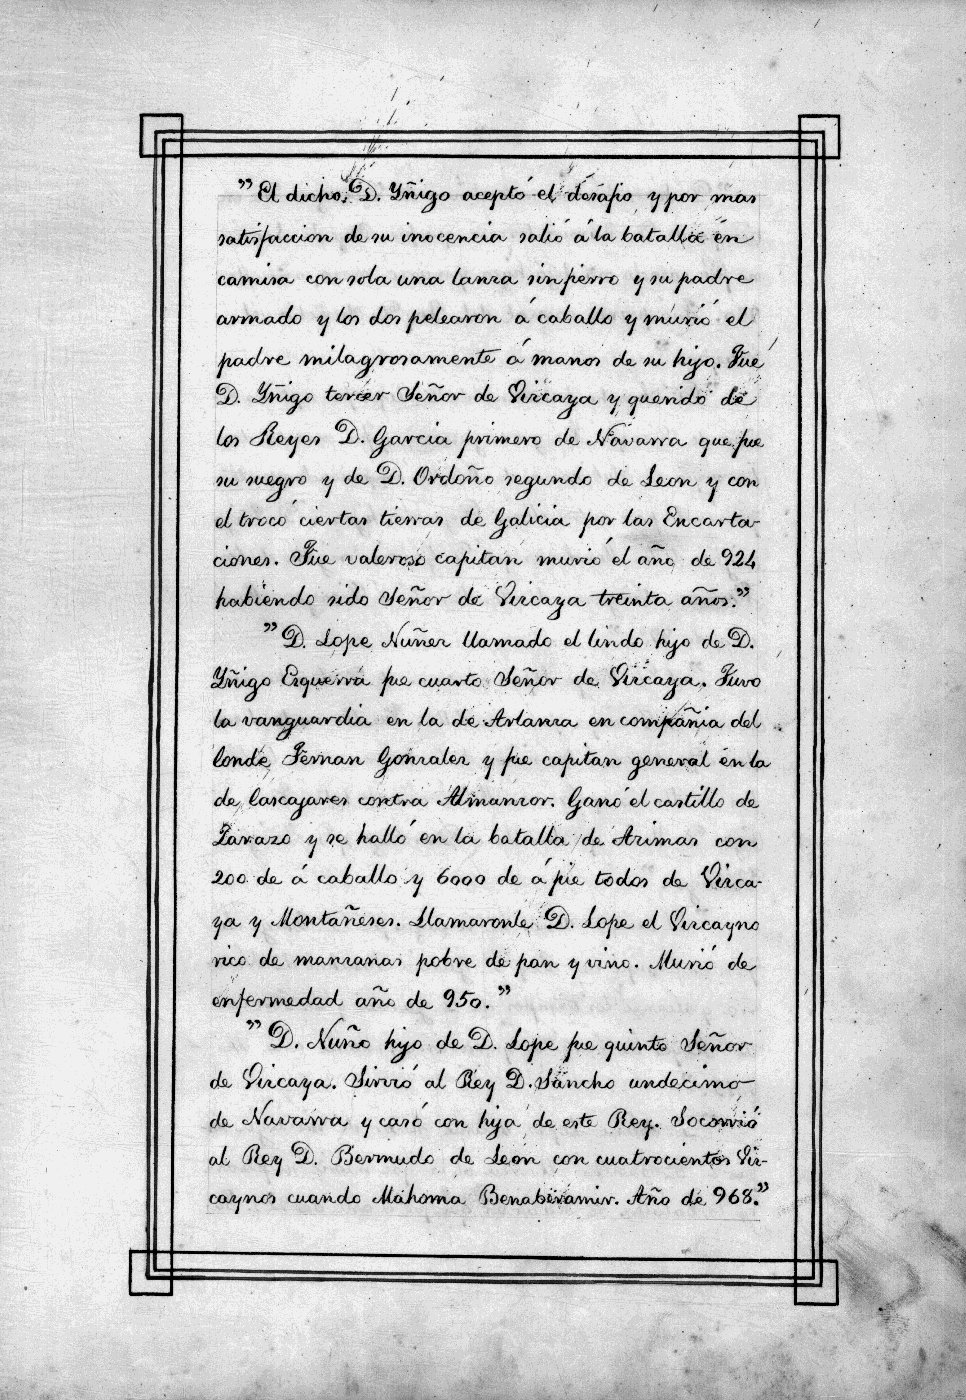 "El dicho D. Yñigo aceptó el desafio y por mas
satisfaccion de su inocencia salió á la batalla en
camisa con sola una lanza sin fierro y su padre
armado y los dos pelearon á caballo y murió el
padre milagrosamente á manos de su hijo. Fué
D. Yñigo tercer Señor de Vizcaya y querido de
los Reyes D. Garcia primero de Navarra que fue
su suegro y de D. Ordoño segundo de Leon y con
el trocó ciertas tierras de Galicia por las Encarta-
ciones. Fue valeroso capitan murió el año de 924
habiendo sido Señor de Vizcaya treinta años."
"D. Lope Nuñez llamado el lindo hijo de D.
Yñigo Ezquerra fue cuarto Señor de Vizcaya. Tuvo
la vanguardia en la de Arlanza en compañia del
Conde Fernan Gonzalez y fue capitan general en la
de Cascajares contra Almanzor. Ganó el castillo de
Zarazo y se halló en la batalla de Azimas con
200 de á caballo y 6000 de á pie todos de Vizca-
ya y Montañeses. Llamaronle D. Lope el Vizcayno
rico de manzanas pobre de pan y vino. Murió de
enfermedad año de 950."
"D. Nuño hijo de D. Lope fue quinto Señor
de Vizcaya. Sirvió al Rey D. Sancho undecimo
de Navarra y casó con hija de este Rey. Socorrió
al Rey D. Bermudo de Leon con cuatrocientos Viz-
caynos cuando Mahoma Benabiramir. Año de 968."